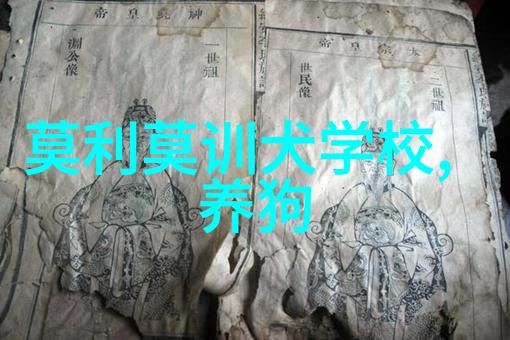 太宗皇帝
二世祖
世民像
神堯皇帝
一世祖
淵公像
莫利莫训犬学校,
养狗